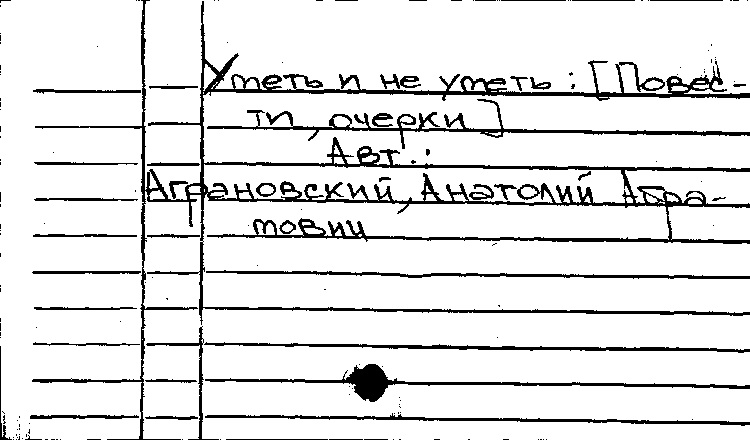 Уметь и не уметь : [Повес-
ти, очерки]
Авт. :
Аграновский, Анатолий Абра-
мович